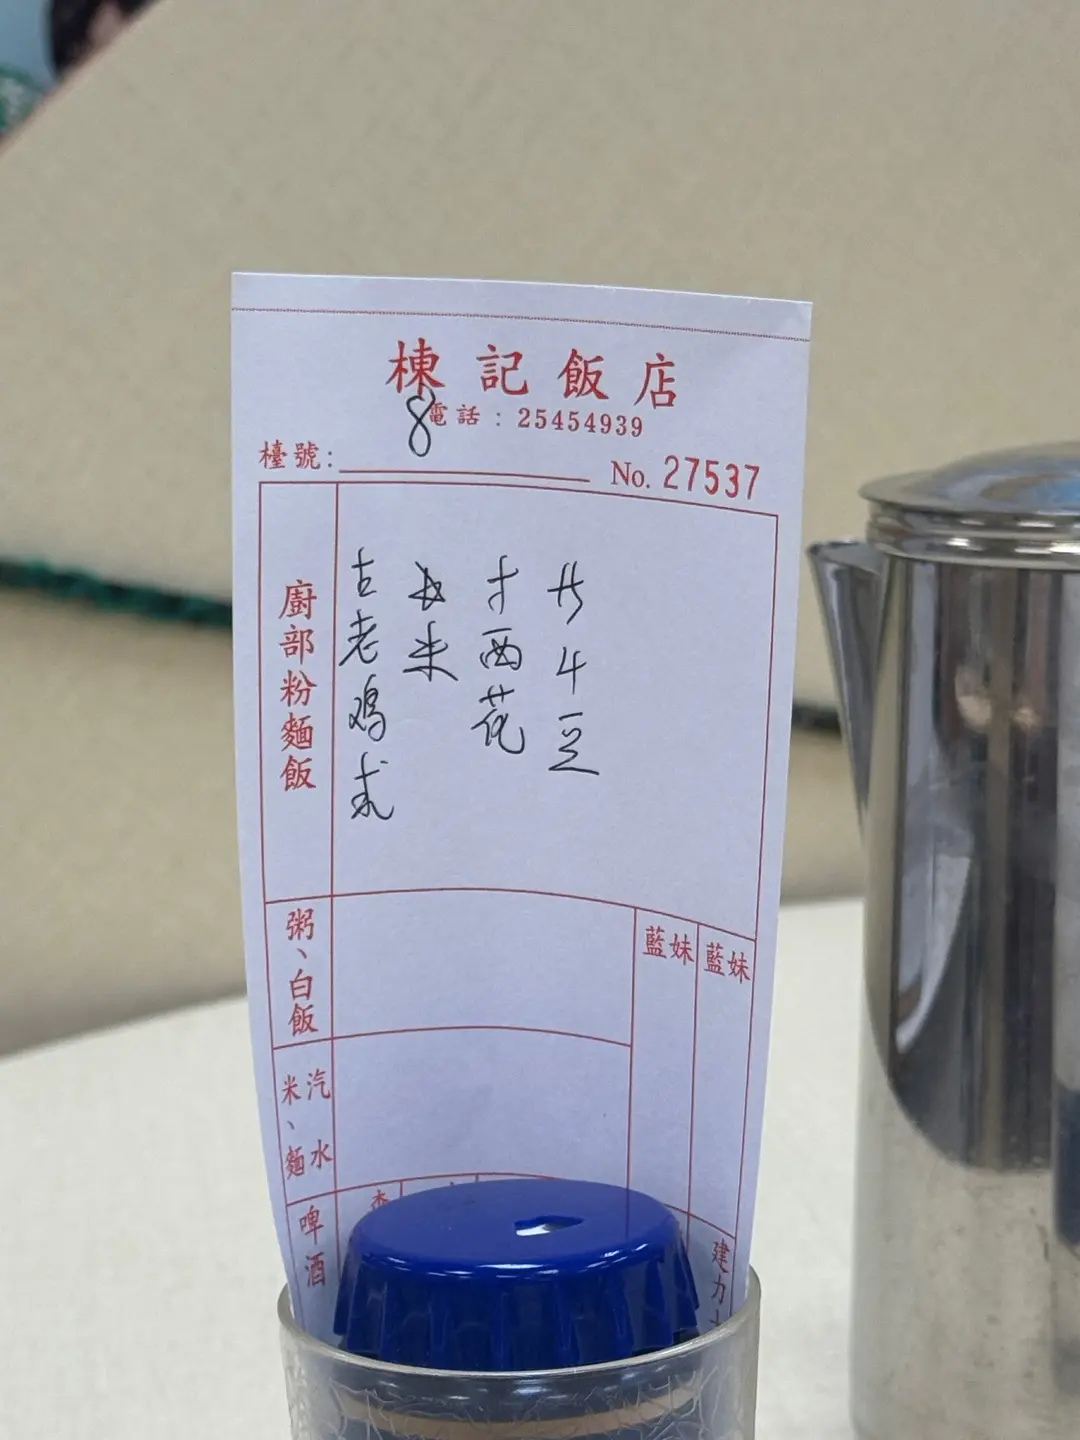 棟記飯店
電話：25454939
檯號: 8
No. 27537
廚部粉麵飯
古老鸡求
米
才西花
井牛豆
粥、白飯
藍妹
藍妹
汽水
米、麵
啤酒
建力